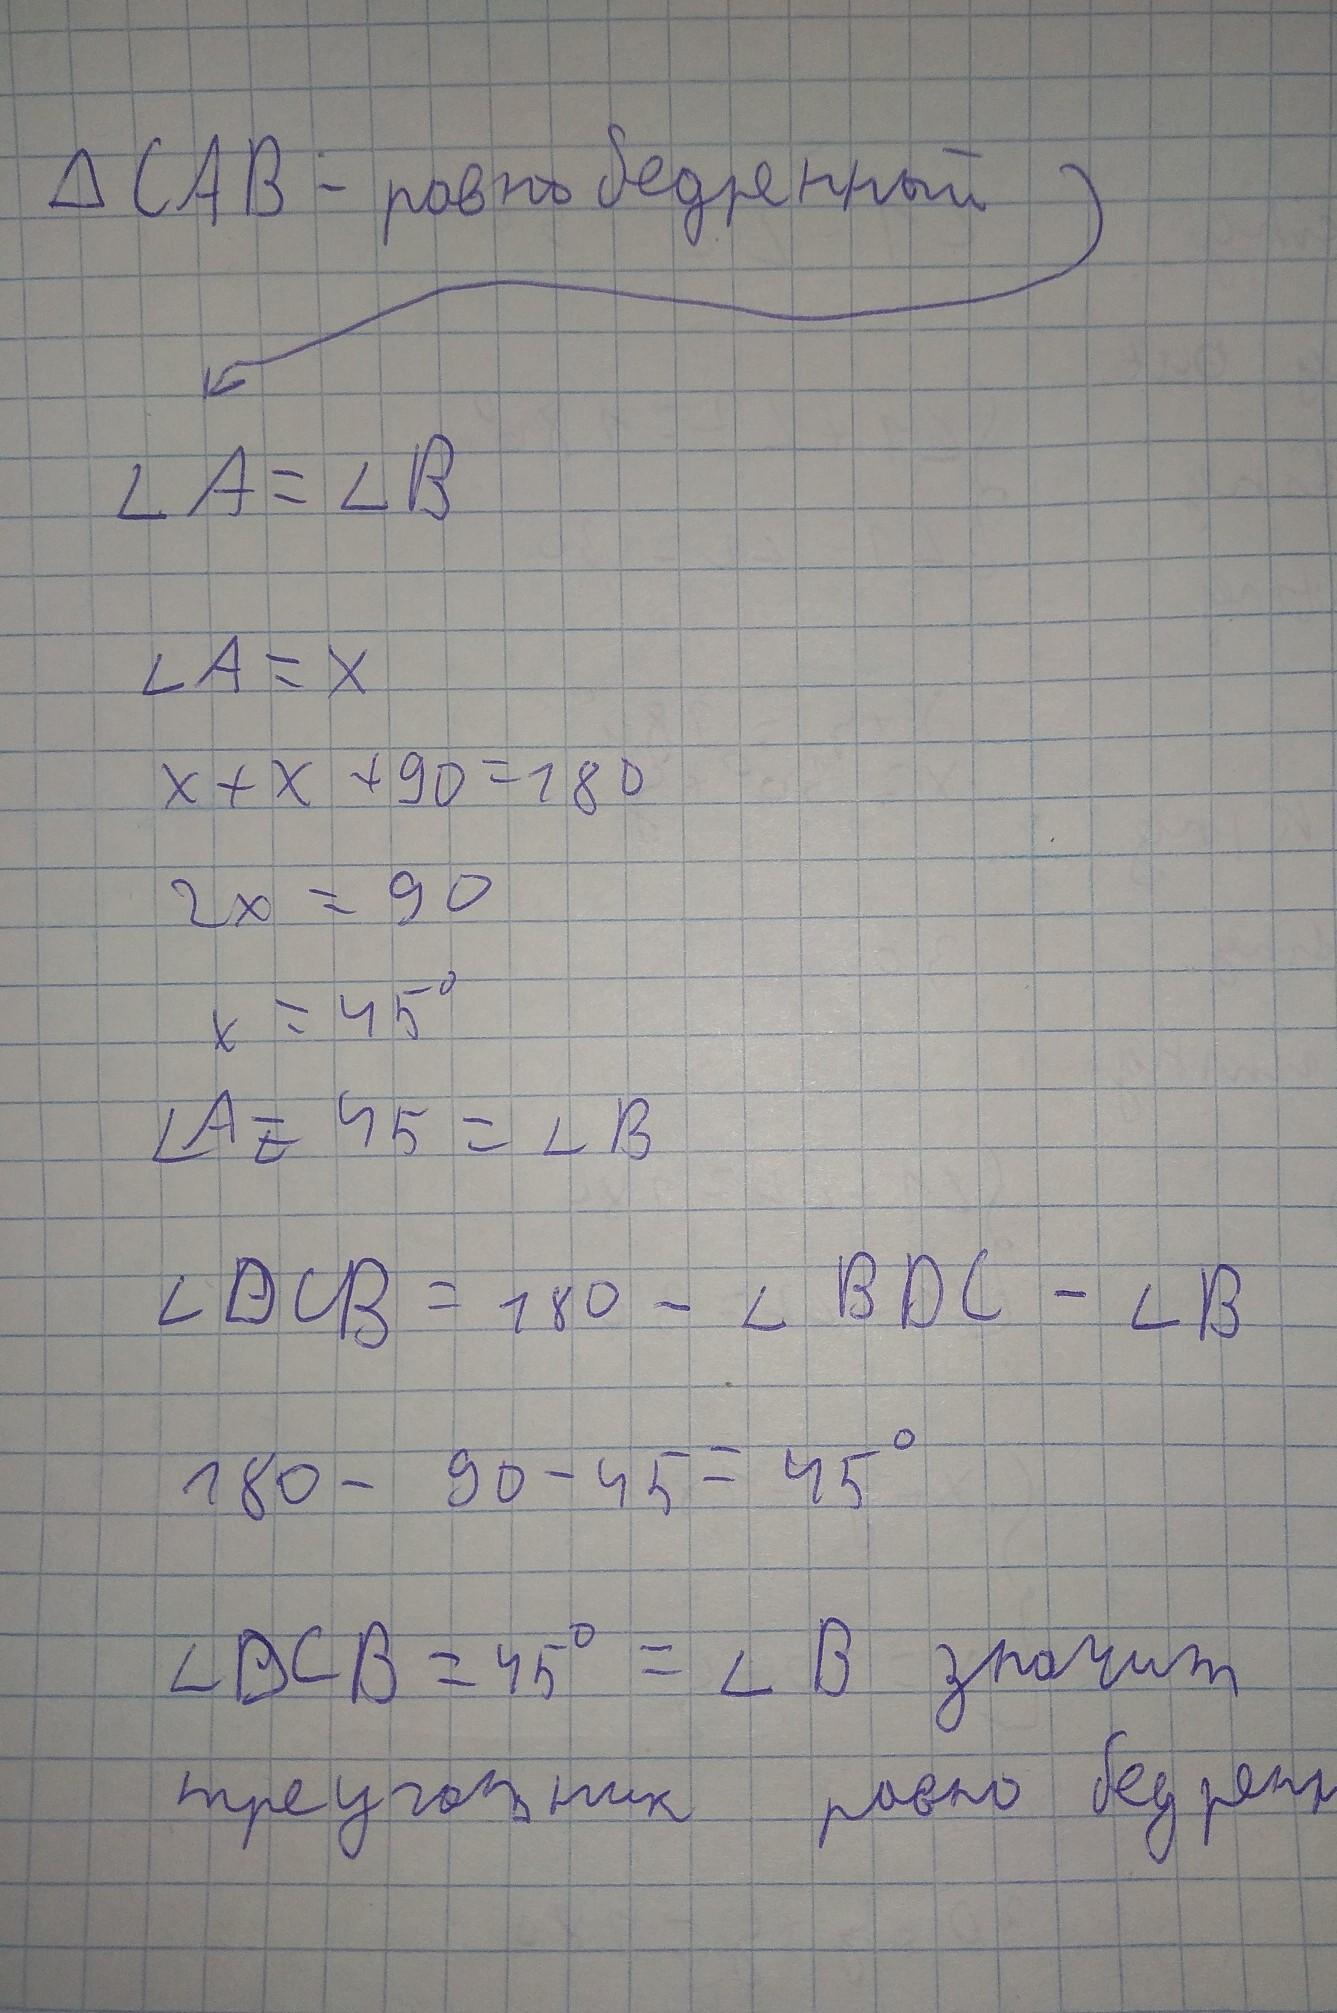 Δ CAB - равнобедренный
∠A = ∠B
∠A = x
x + x + 90 = 180
2x = 90
x = 45°
∠A = 45 = ∠B
∠DCB = 180 - ∠BDC - ∠B
180 - 90 - 45 = 45°
∠DCB = 45° = ∠B значит
треугольник равно бедренн